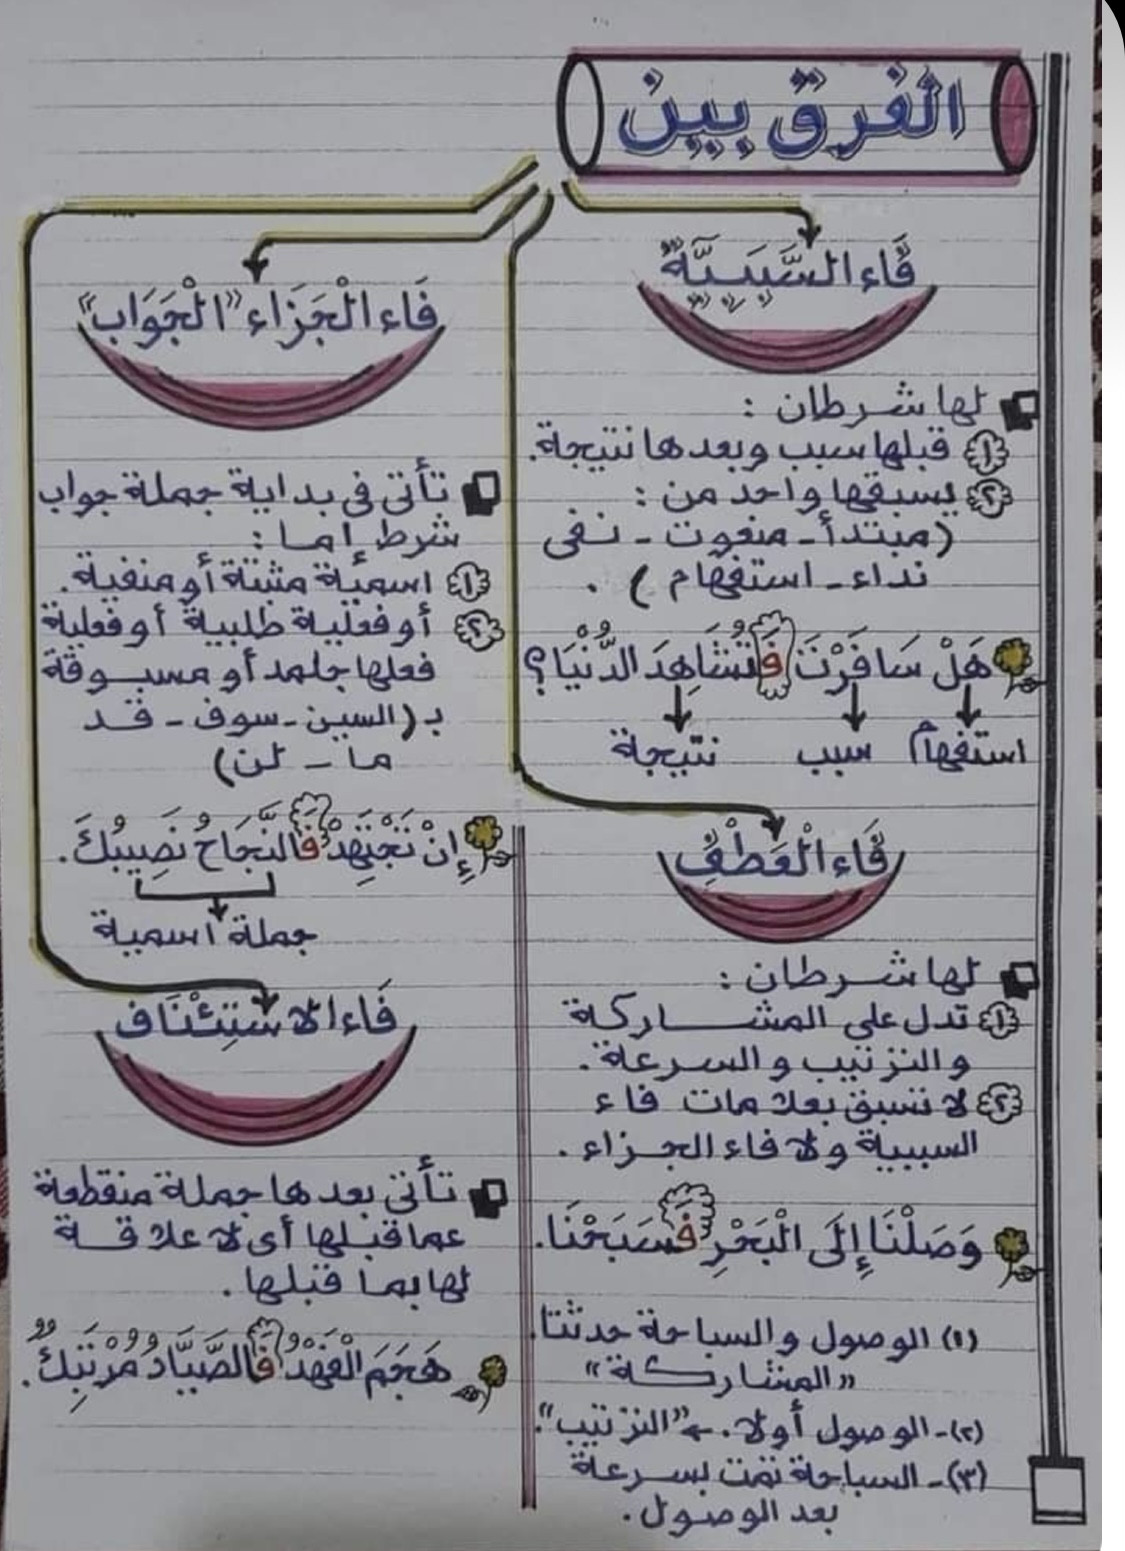 الفرق بين
فَاء السَّبَبِيَّةُ
لها شرطان :
١ قبلها سبب وبعدها نتيجة.
٢ يسبقها واحد من :
(مبتدأ - منعوت - نفى
نداء - استفهام ) .
هَلْ سَافَرْتَ فَتُشَاهِدَ الدُّنْيَا؟
استفهام سبب نتيجة
فَاء الْعَطْفِ
لها شرطان :
١ تدل على المشاركة
والترتيب والسرعة.
٢ لا تسبق بعلامات فاء
السببية ولا فاء الجزاء .
وَصَلْنَا إِلَى الْبَحْرِ فَسَبَحْنَا.
(١) الوصول والسباحة حدثتا.
"المشاركة"
(٢)- الوصول أولا. ← "الترتيب".
(٣)- السباحة تمت بسرعة
بعد الوصول .
فَاء الْجَزَاء "الْجَوَاب"
تأتى فى بداية جملة جواب
شرط إما :
١ اسمية مثبتة أو منفية .
٢ أو فعلية طلبية أو فعلية
فعلها جامد أو مسبوقة
بـ (السين - سوف - قد
ما - لن)
إِنْ تَجْتَهِدْ فَالنَّجَاحُ نَصِيبُكَ .
جملة اسمية
فَاء الاسْتِئْنَاف
تأتى بعدها جملة منقطعة
عما قبلها أى لا علاقة
لها بما قبلها .
هَجَمَ الْفَهْدُ فَالصَّيَّادُ مُرْتَبِكٌ .